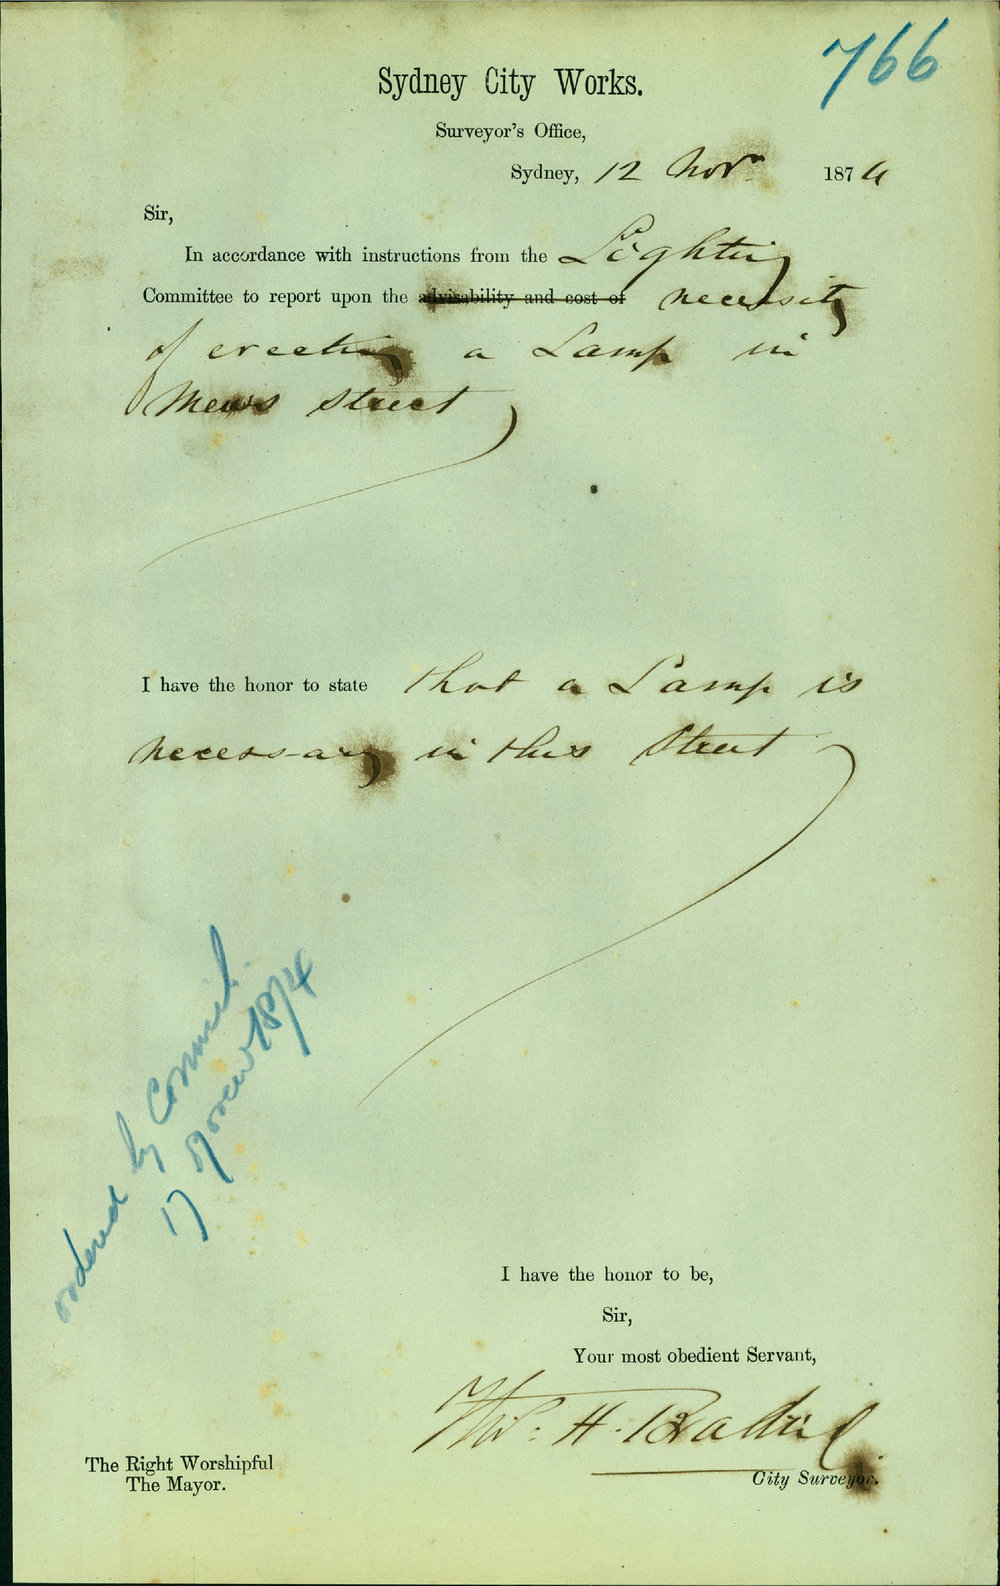 766
Sydney City Works.
Surveyor's Office,
Sydney, 12 Novr 1874
Sir,
In accordance with instructions from the Lighting
Committee to report upon the advisability and cost of necessity
of erecting a Lamp in
Mews Street
I have the honor to state that a Lamp is
necessary in this Street
ordered by Council
17 Novr 1874
I have the honor to be,
Sir,
Your most obedient Servant,
Thos. H. Bradridge
City Surveyor.
The Right Worshipful
The Mayor.